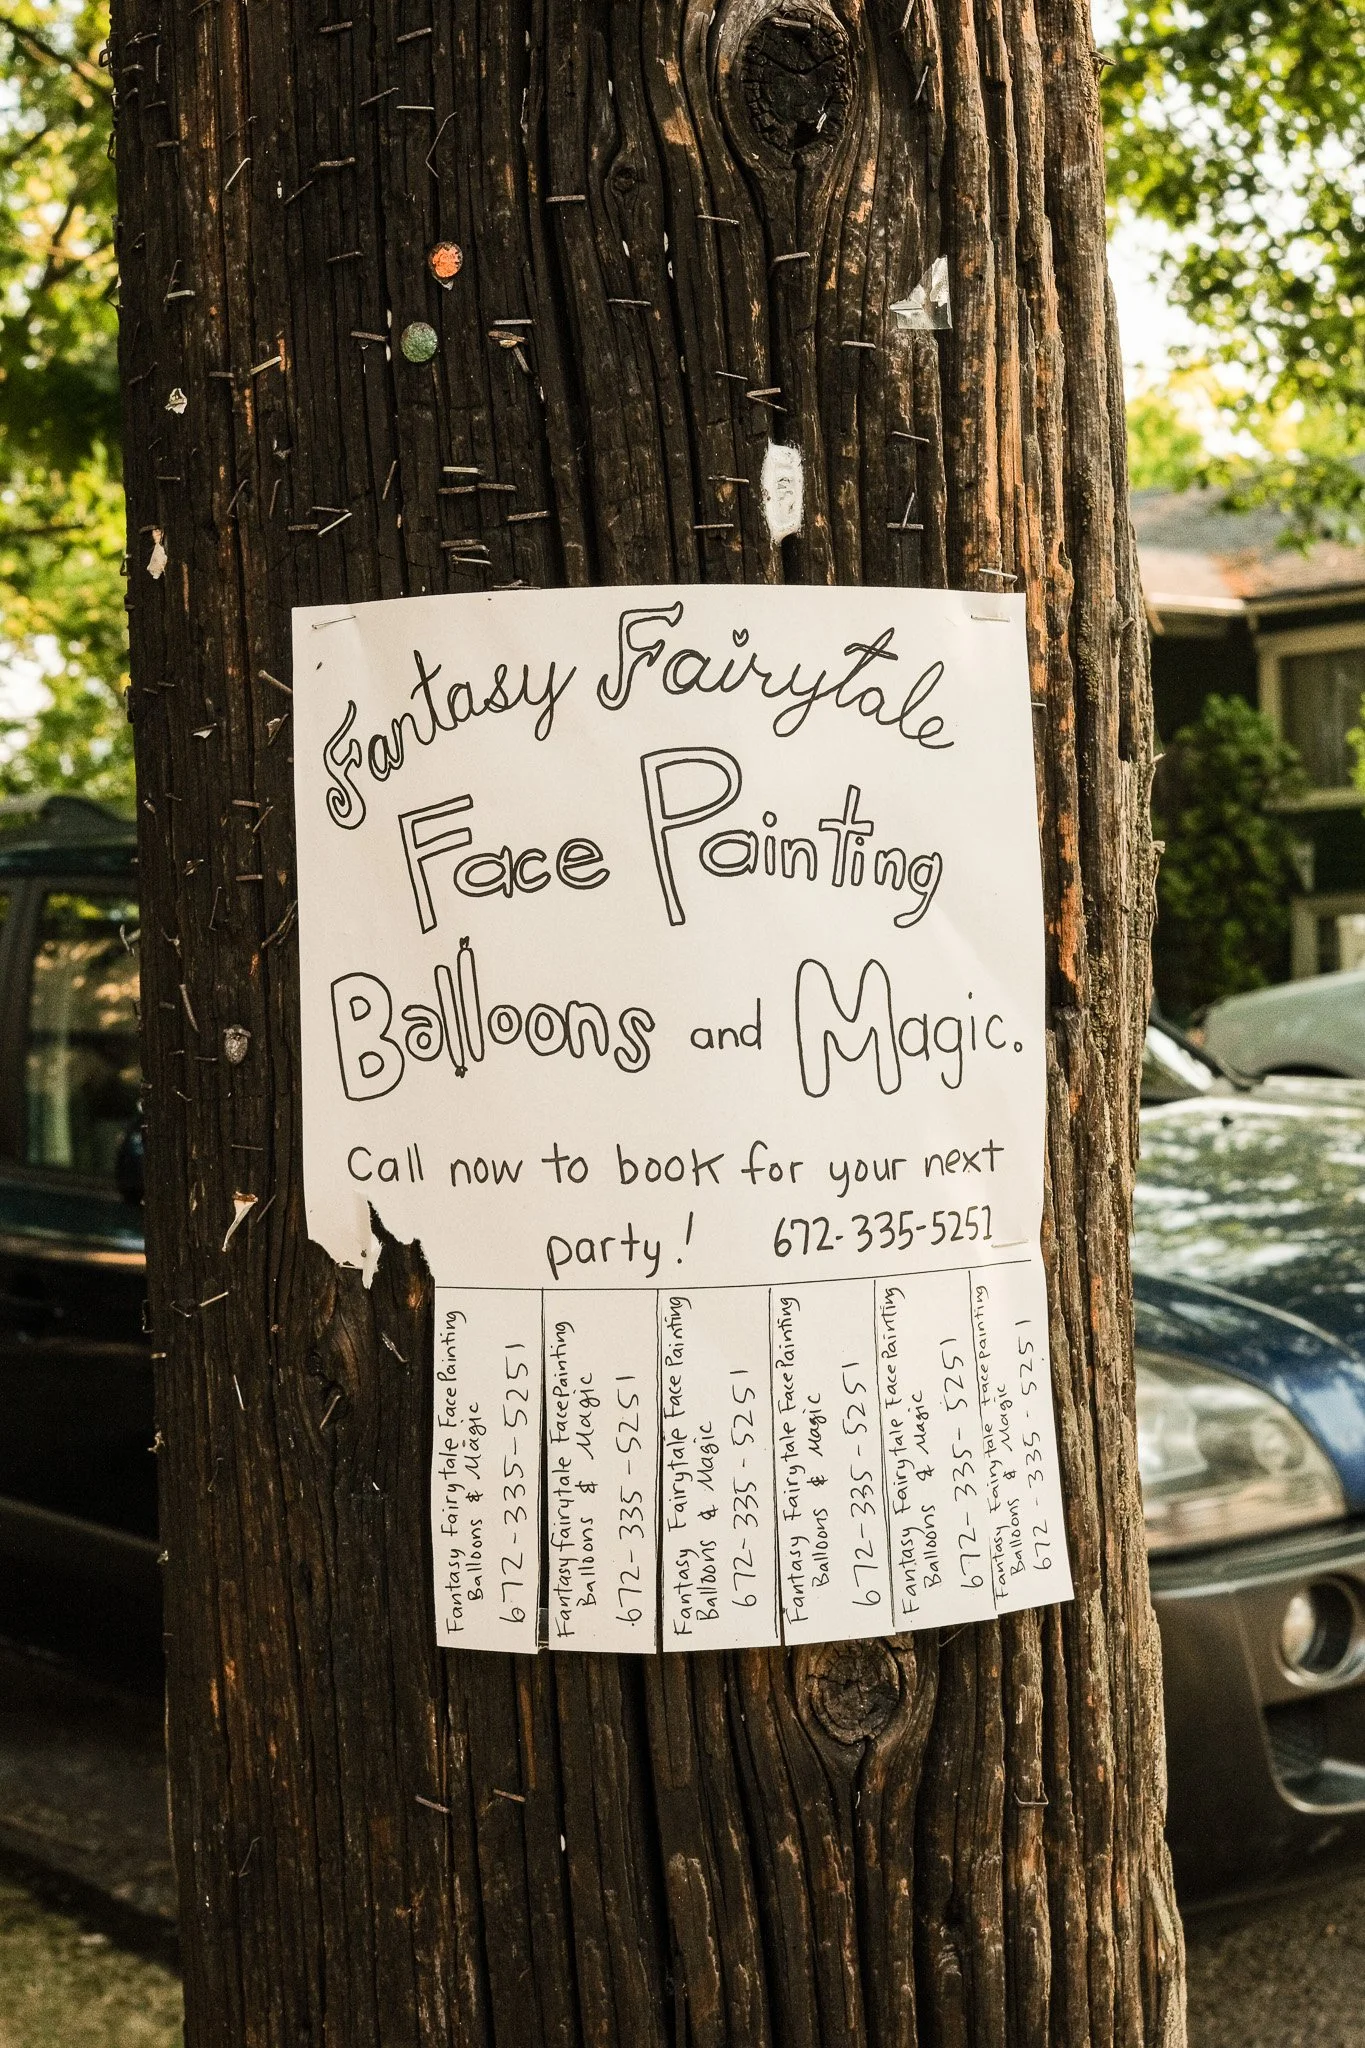 Fantasy Fairytale
Face Painting
Balloons and Magic.
Call now to book for your next
party! 672-335-5251
Fantasy Fairytale Face Painting
Balloons & Magic
672-335-5251
Fantasy Fairytale Face Painting
Balloons & Magic
672-335-5251
Fantasy Fairytale Face Painting
Balloons & Magic
672-335-5251
Fantasy Fairytale Face Painting
Balloons & Magic
672-335-5251
Fantasy Fairytale Face Painting
Balloons & Magic
672-335-5251
Fantasy Fairytale Face Painting
Balloons & Magic
672-335-5251